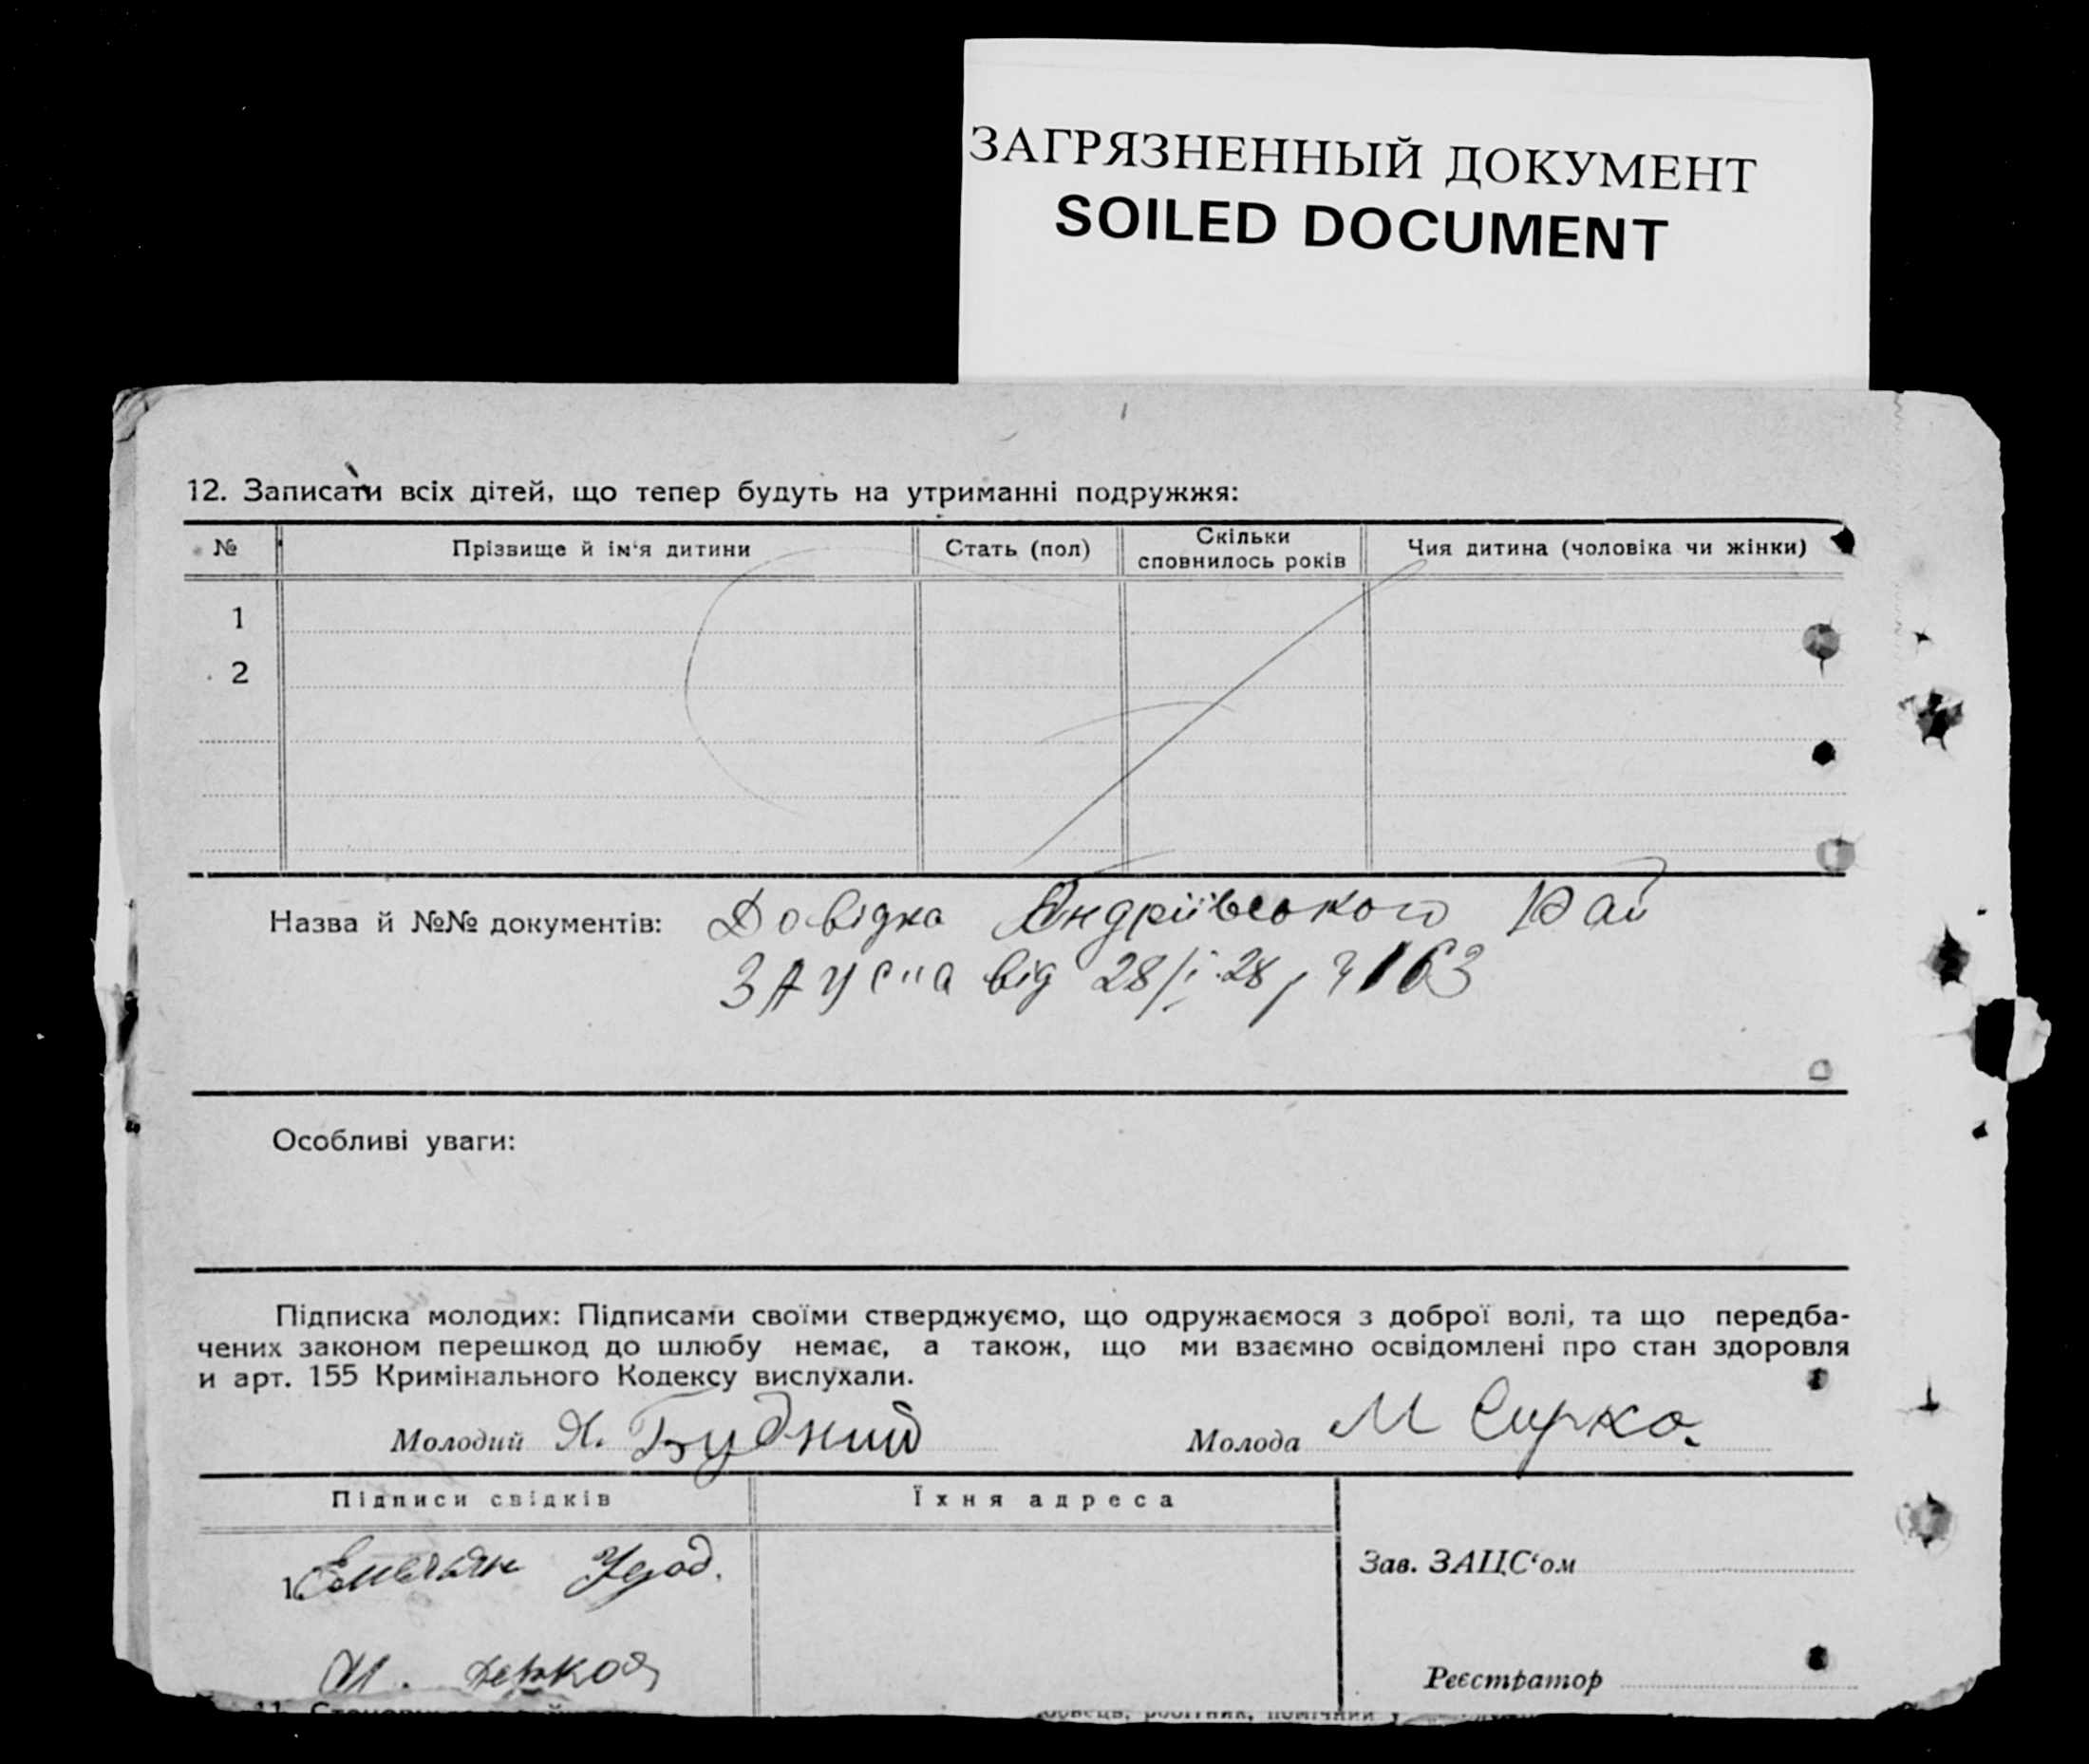 ЗАГРЯЗНЕННЫЙ ДОКУМЕНТ
SOILED DOCUMENT
12. Записати всіх дітей, що тепер будуть на утриманні подружжя:
№ Прізвище й ім'я дитини Стать (пол) Скільки сповнилось років Чия дитина (чоловіка чи жінки)
1
2
Назва й №№ документів: Довідка Андріївського Рай
від 28/I 28 163
Особливі уваги:
Підписка молодих: Підписами своїми стверджуємо, що одружаємося з доброї волі, та що передба-
чених законом перешкод до шлюбу немає, а також, що ми взаємно освідомлені про стан здоровля
и арт. 155 Кримінального Кодексу вислухали.
Молодий Я. Будний Молода М Сирко.
Підписи свідків Їхня адреса
1. Емельян Зав. ЗАЦС'ом
Реєстратор